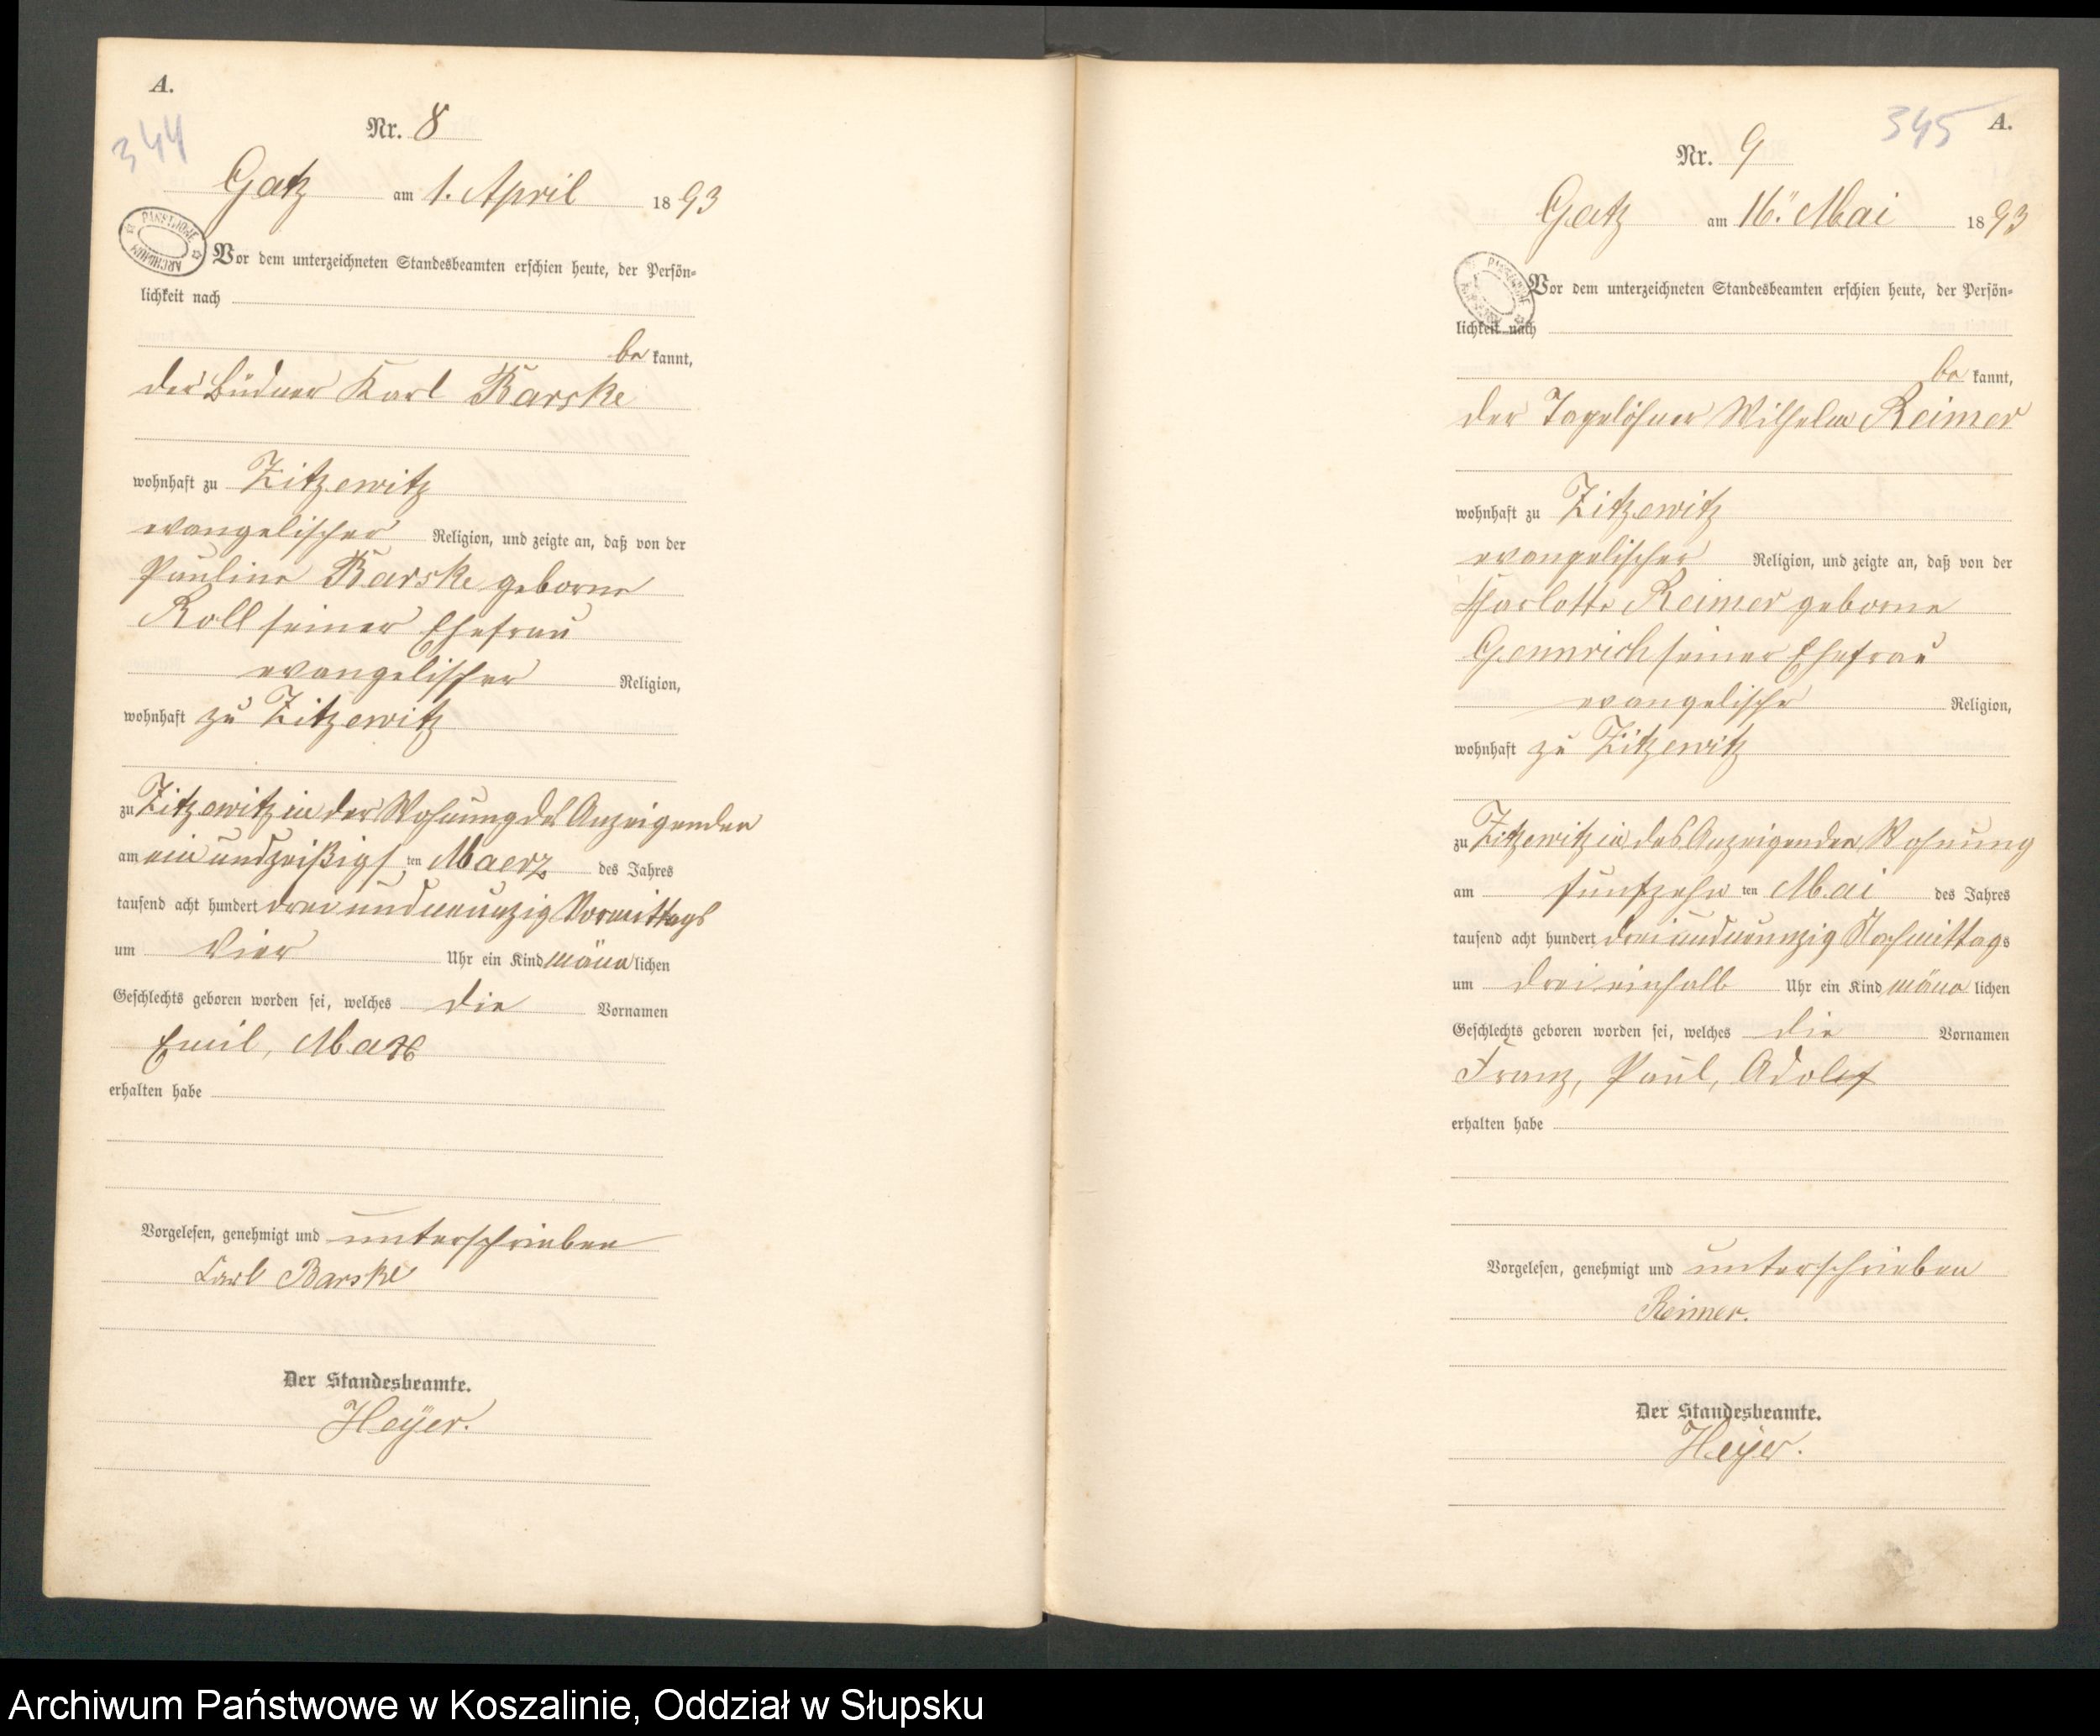 A.
344
Nr. 8
Gatz am 1. April 1893
PAŃSTWOWE ARCHIWUM
Vor dem unterzeichneten Standesbeamten erschien heute, der Persön-
lichkeit nach
be kannt,
der Büdner Karl Barske
wohnhaft zu Zitzewitz
evangelischer Religion, und zeigte an, daß von der
Pauline Barske geborne
Roll seiner Ehefrau
evangelischer Religion,
wohnhaft zu Zitzewitz
zu Zitzewitz in der Wohnung des Anzeigenden
am ein und dreißigs ten Maerz des Jahres
tausend acht hundert drei und neunzig Vormittags
um vier Uhr ein Kind männ lichen
Geschlechts geboren worden sei, welches die Vornamen
Emil, Max
erhalten habe
Vorgelesen, genehmigt und unterschrieben
Carl Barske
Der Standesbeamte.
Heÿer.
345
A.
Nr. 9
Gatz am 16. Mai 1893
PAŃSTWOWE ARCHIWUM
Vor dem unterzeichneten Standesbeamten erschien heute, der Persön-
lichkeit nach
be kannt,
der Tagelöhner Wilhelm Reimer
wohnhaft zu Zitzewitz
evangelischer Religion, und zeigte an, daß von der
Charlotte Reimer geborne
Gennrich seiner Ehefrau
evangelischer Religion,
wohnhaft zu Zitzewitz
zu Zitzewitz in des Anzeigenden Wohnung
am fünfzehn ten Mai des Jahres
tausend acht hundert drei und neunzig Nachmittags
um drei einhalb Uhr ein Kind männ lichen
Geschlechts geboren worden sei, welches die Vornamen
Franz, Paul, Adolf
erhalten habe
Vorgelesen, genehmigt und unterschrieben
Reimer.
Der Standesbeamte.
Heÿer.
Archiwum Państwowe w Koszalinie, Oddział w Słupsku